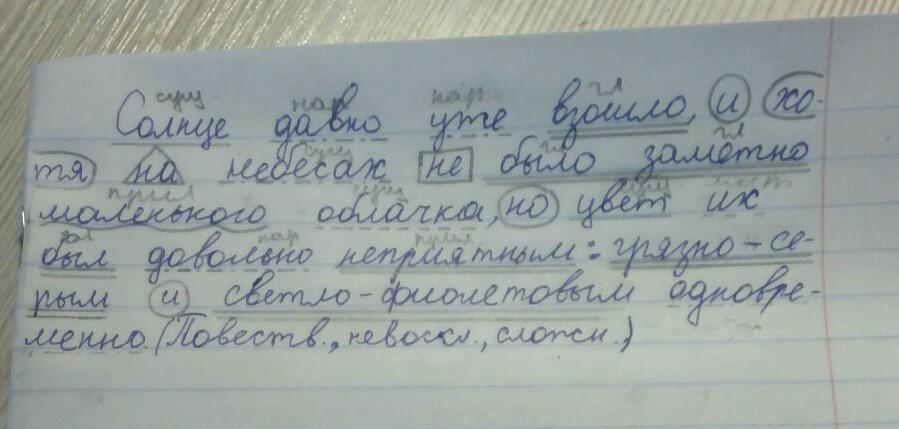 сущ нар нар гл
Солнце давно уже взошло, и хо-
сущ гл гл
тя на небесах не было заметно
прил сущ сущ мест
маленького облачка, но цвет их
гл нар прил
был довольно неприятным: грязно-се-
рым и светло-фиолетовым одновре-
менно. (Повеств., невоскл., сложн.)